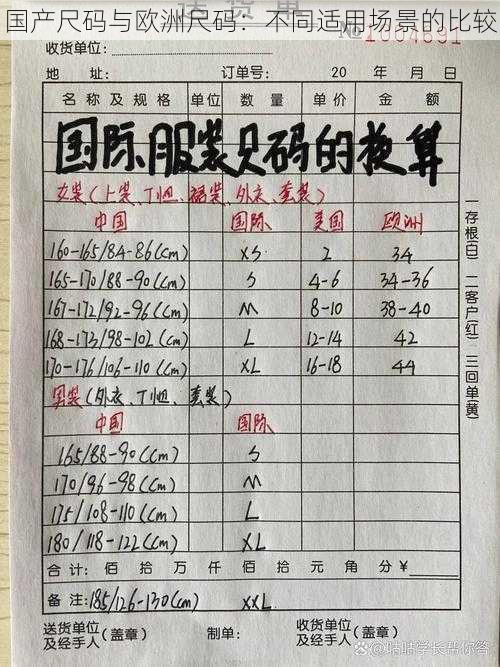 国产尺码与欧洲尺码：不同适用场景的比较
送货单
收货单位： № 1004691
地址： 订单号： 20 年 月 日
名称及规格 单位 数量 单价 金额
国际服装尺码的换算
女装(上装、T恤、裙装、外衣、套装)
中国 国际 美国 欧洲
160-165/84-86(cm) XS 2 34
165-170/88-90(cm) S 4-6 34-36
167-172/92-96(cm) M 8-10 38-40
168-173/98-102(cm) L 12-14 42
170-176/106-110(cm) XL 16-18 44
男装(外衣、T恤、套装)
中国 国际
165/88-90(cm) S
170/96-98(cm) M
175/108-110(cm) L
180/118-122(cm) XL
合计： 佰 拾 万 仟 佰 拾 元 角 分 ¥
备注： 185/126-130(cm) XXL
送货单位及经手人(盖章) 收货单位及经手人(盖章)
一存根(白) 二客户(红) 三回单(黄)